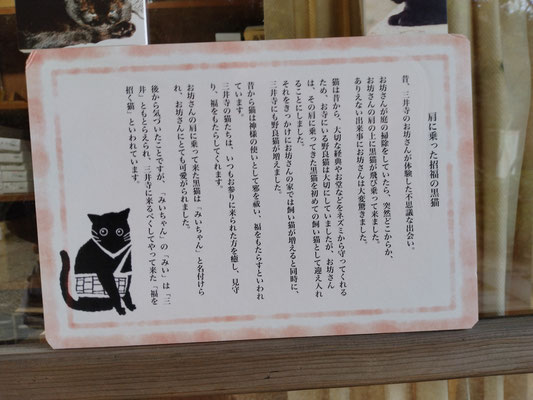 肩に乗った招福の黒猫
昔、三井寺のお坊さんが体験した不思議な出会い。
お坊さんが庭の掃除をしていたら、突然どこからか、
お坊さんの肩の上に黒猫が飛び乗って来ました。
ありえない出来事にお坊さんは大変驚きました。
猫は昔から、大切な経典やお堂などをネズミから守ってくれる
ため、お寺にいる野良猫は大切にしていましたが、お坊さん
は、その肩に乗ってきた黒猫を初めての飼い猫として迎え入れ
ることにしました。
それをきっかけにお坊さんの家では飼い猫が増えると同時に、
三井寺にも野良猫が増えました。
昔から猫は神様の使いとして邪を祓い、福をもたらすといわれ
ています。
三井寺の猫たちは、いつもお参りに来られた方を癒し、見守
り、福をもたらしてくれます。
お坊さんの肩に乗って来た黒猫は「みいちゃん」と名付けら
れ、お坊さんにとても可愛がられました。
後から気づいたことですが、「みいちゃん」の「みい」は「三
井」ともとらえられ、三井寺に来るべくしてやって来た「福を
招く猫」といわれています。